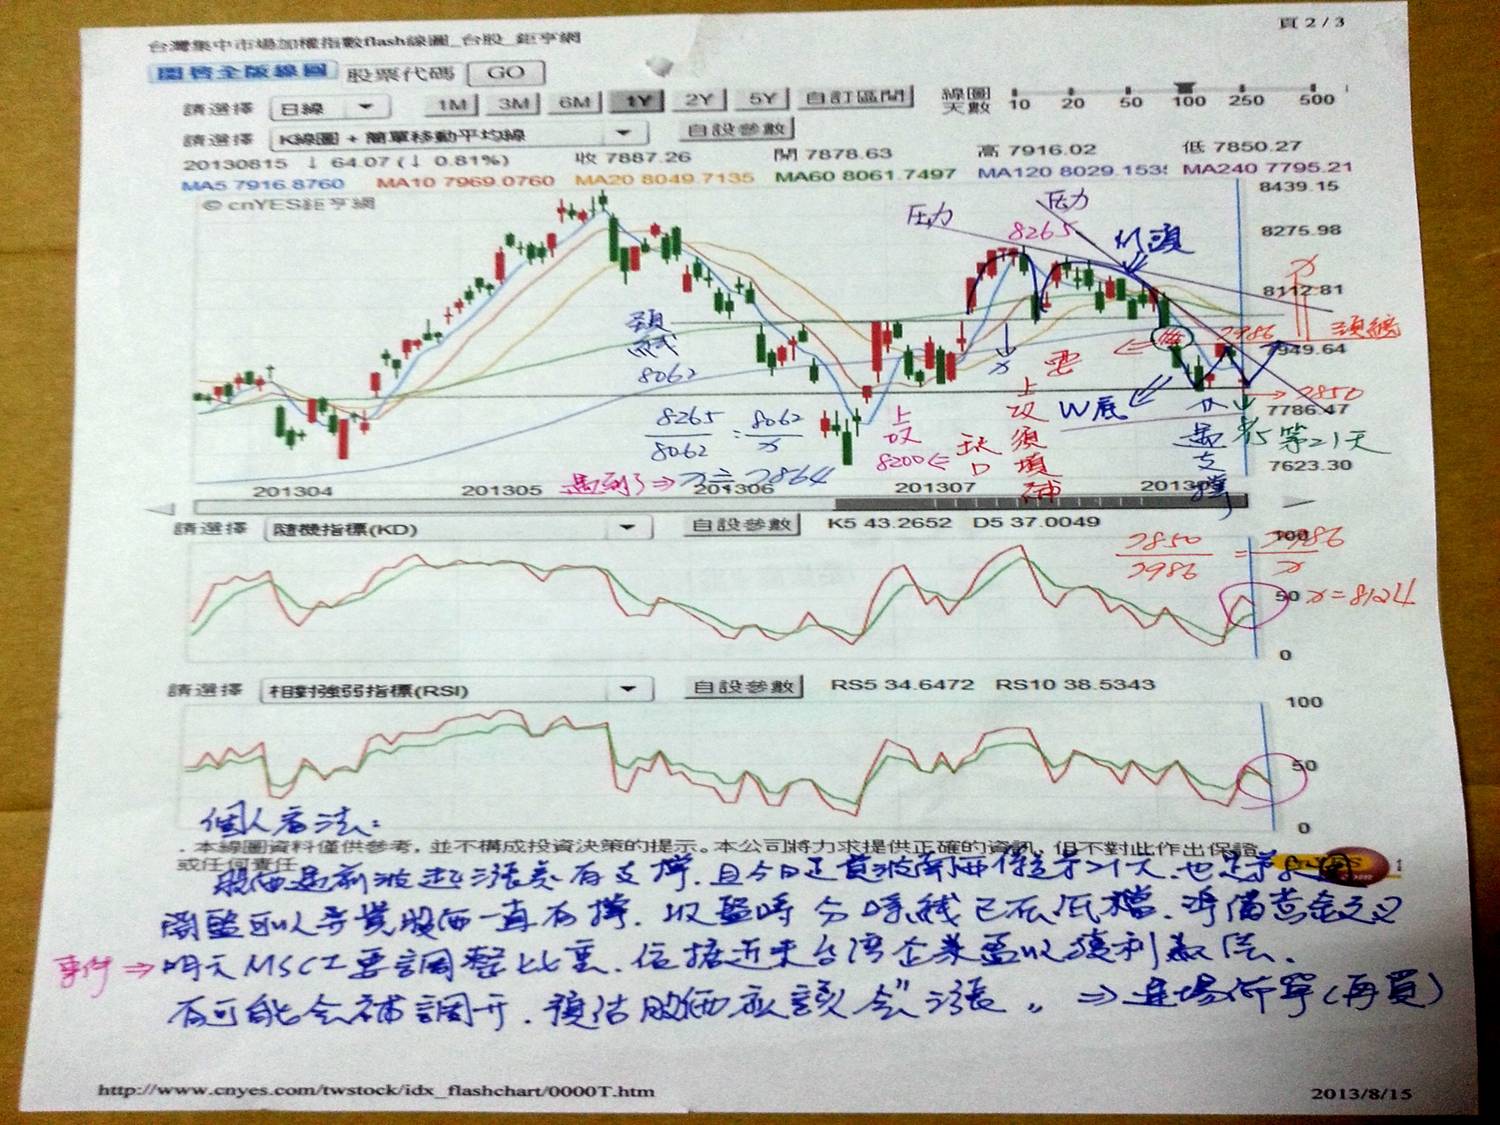 台灣集中市場加權指數flash線圖_台股_鉅亨網
頁 2 / 3
開啓全版線圖 股票代碼 GO
請選擇 日線 1M 3M 6M 1Y 2Y 5Y 自訂區間 線圖天數 10 20 50 100 250 500
請選擇 K線圖 + 簡單移動平均線 自設參數
20130815 ↓ 64.07 (↓ 0.81%) 收 7887.26 開 7878.63 高 7916.02 低 7850.27
MA5 7916.8760 MA10 7969.0760 MA20 8049.7135 MA60 8061.7497 MA120 8029.153 MA240 7795.21
© cnYES鉅亨網
8439.15
8275.98
8112.81
7949.64
7786.47
7623.30
壓力
壓力
8265
M頭
x
7986 頸線
頸線
8062
x
W底
7850
8265/8062 = 8062/x
遇到了 ⇒ x ≒ 7864
上攻
8200 ⇐ 缺口
上攻須填補
第21天
遇支撐
201304 201305 201306 201307
請選擇 隨機指標(KD) 自設參數 K5 43.2652 D5 37.0049
100
50
0
7850/7986 = 7986/x
x = 8124
請選擇 相對強弱指標(RSI) 自設參數 RS5 34.6472 RS10 38.5343
100
50
0
個人看法:
. 本線圖資料僅供參考, 並不構成投資決策的提示。本公司將力求提供正確的資訊, 但不對此作出保證
或任何責任
股價遇前波起漲點有支撐, 且今日正 第21天, 也
開盤 股價一直有撐, 收盤時分時線已在低檔,
事件 ⇒ 明天MSCI要調整比重, 依據近來台灣企業 獲利
有可能會被調升, 預估股價應該會"漲" ⇒ 進場 (再買)
http://www.cnyes.com/twstock/idx_flashchart/0000T.htm
2013/8/15